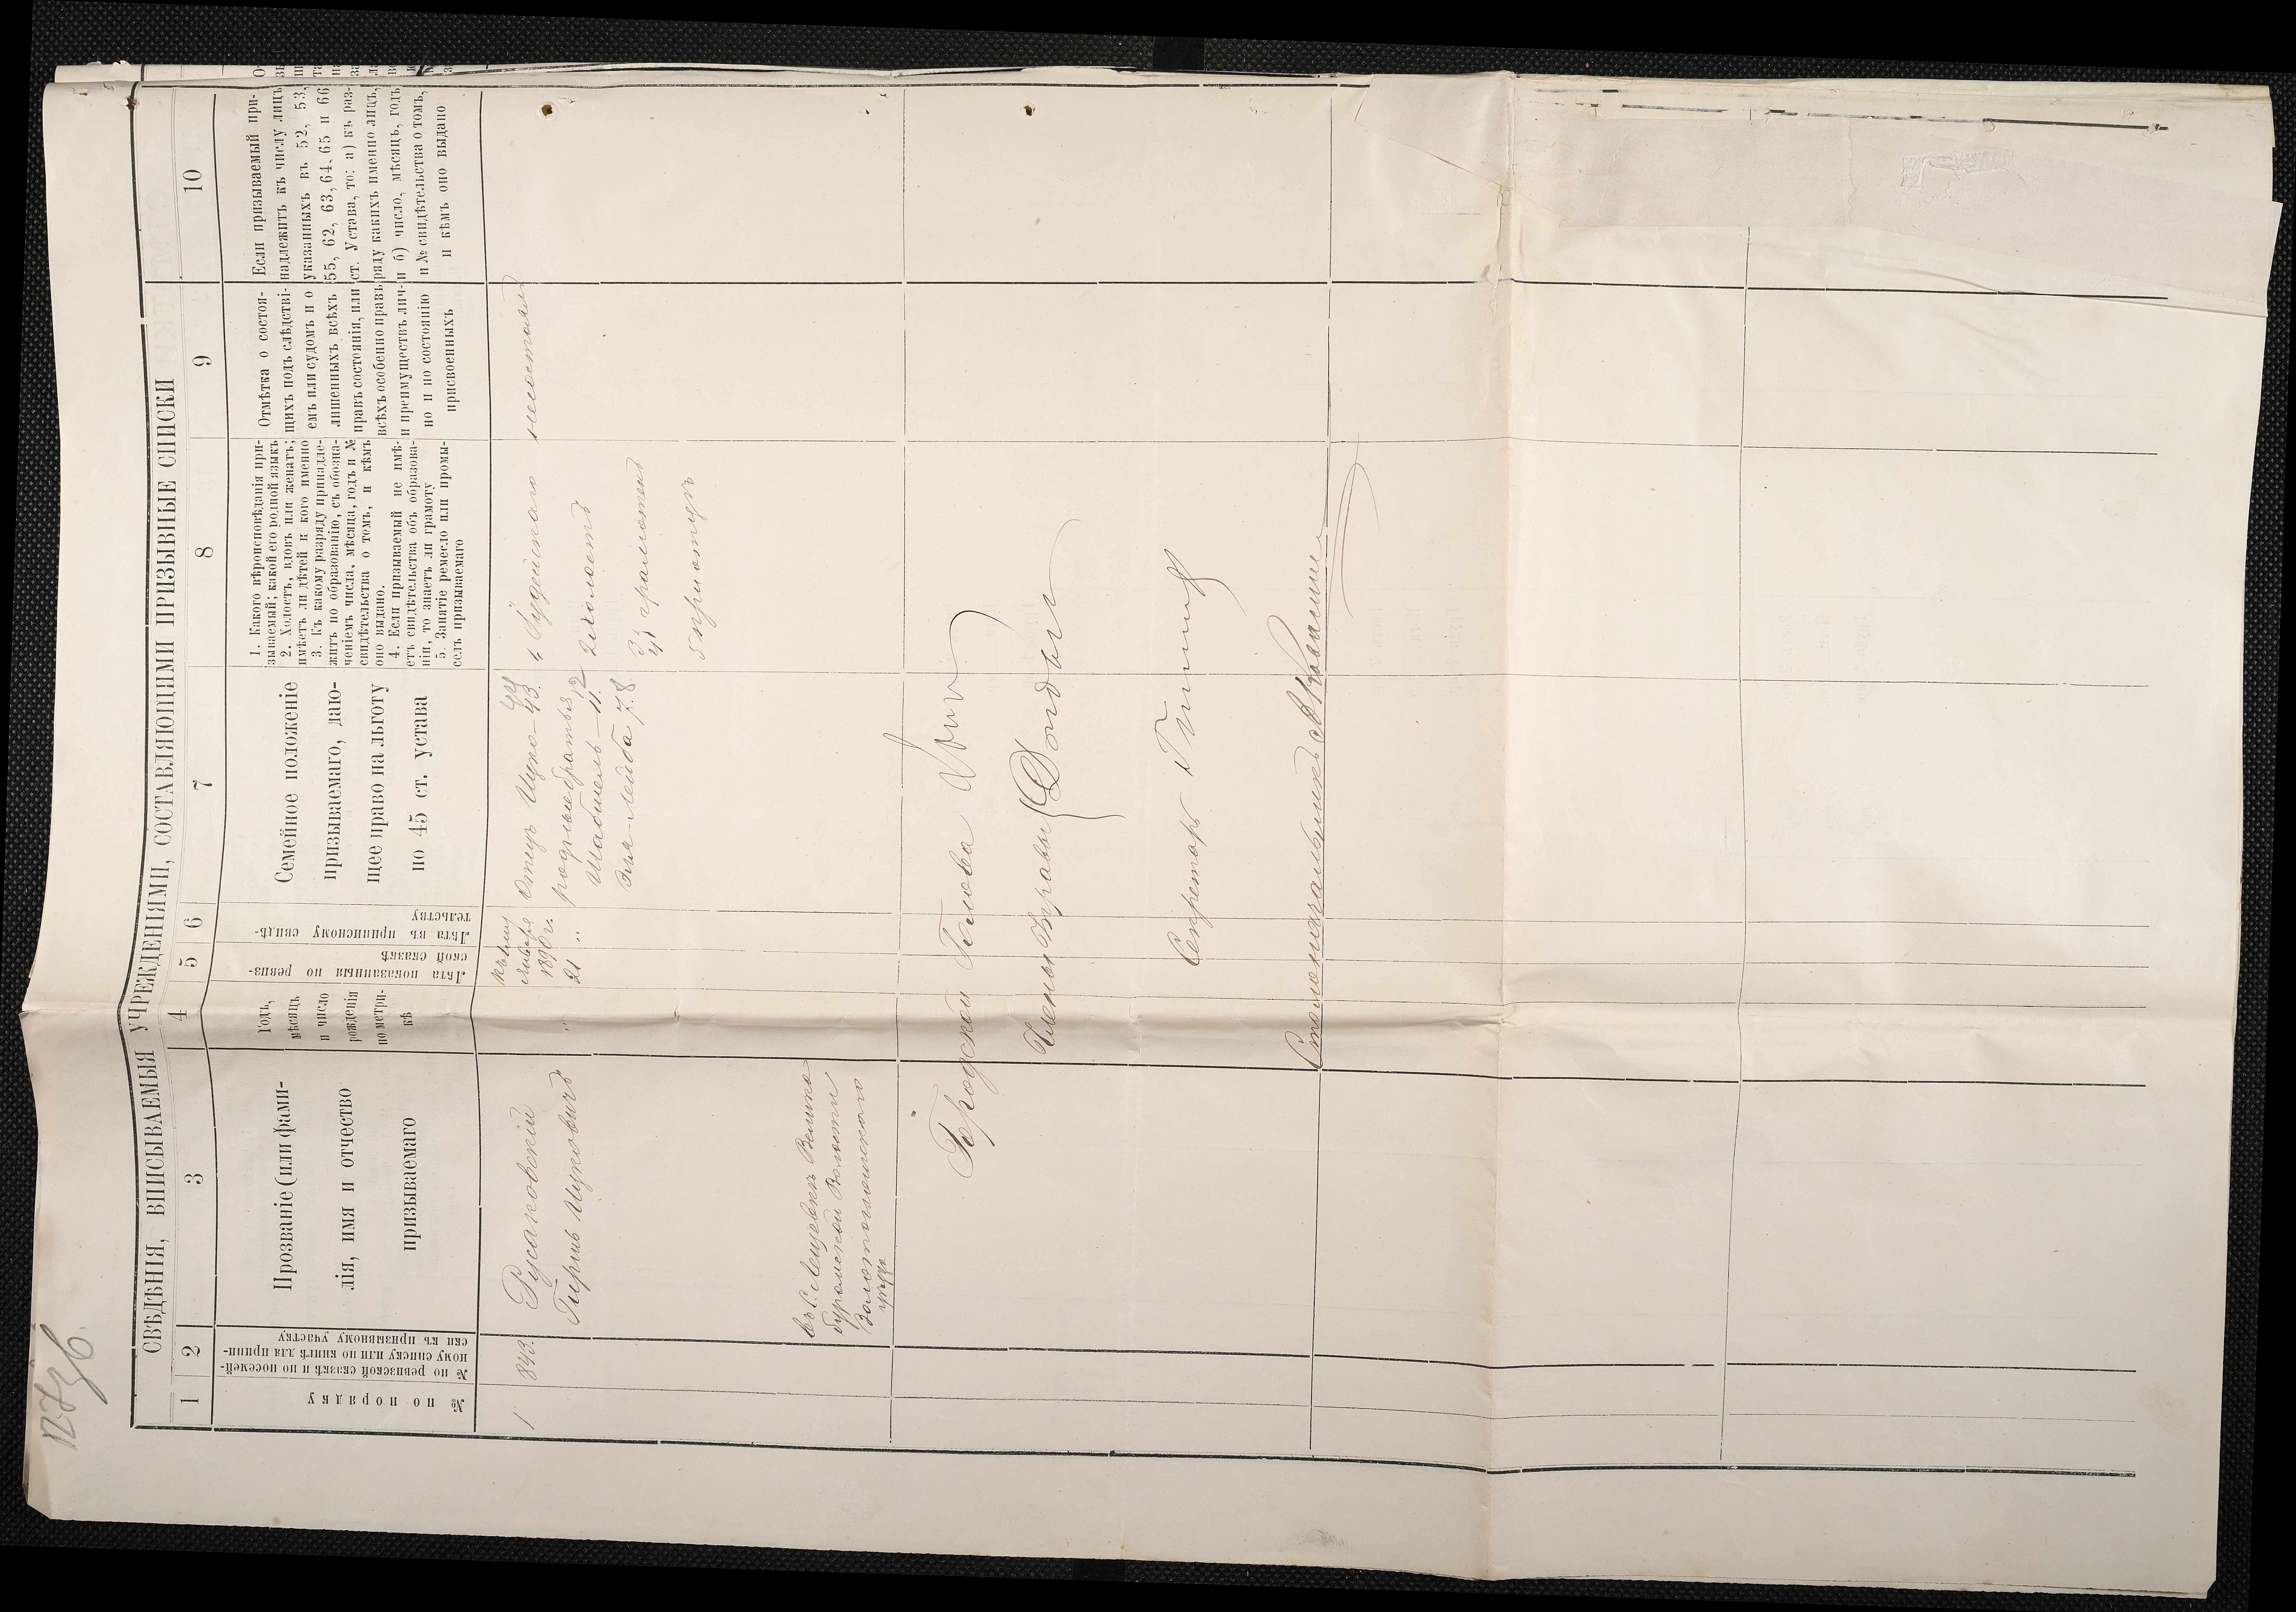 127зв
СВѢДѢНІЯ, ВПИСЫВАЕМЫЯ УЧРЕЖДЕНІЯМИ, СОСТАВЛЯЮЩИМИ ПРИЗЫВНЫЕ СПИСКИ
1 2 3 4 5 6 7 8 9 10
№ по порядку
№ по ревизской сказкѣ и по посемей-
ному списку или по книгѣ для припи-
ски къ призывному участку
Прозваніе (или фами-
лія, имя и отчество
призываемаго
Годъ,
мѣсяцъ
и число
рожденія
по метри-
кѣ
Лѣта показанныя по ревиз-
ской сказкѣ
Лѣта въ приписному свидѣ-
тельству
Семейное положеніе
призываемаго, даю-
щее право на льготу
по 45 ст. устава
1. Какого вѣроисповѣданія при-
зываемый; какой его родной языкъ
2. Холостъ, вдовъ или женатъ;
имѣетъ ли дѣтей и кого именно
3. Къ какому разряду принадле-
житъ по образованію, съ обозна-
ченіемъ числа, мѣсяца, годъ и №
свидѣтельства о темъ, и кѣмъ
оно выдано.
4. Если призываемый не имѣ-
етъ свидѣтельства объ образова-
ніи, то знаетъ ли грамоту
5. Занятіе ремесло или промы-
селъ призываемаго
Отмѣтка о состоя-
щихъ подъ слѣдстві-
емъ или судомъ и о
лишенныхъ всѣхъ
правъ состоянія, или
всѣхъ особенно правъ
и преимуществъ лич-
но и по состоянію
присвоенныхъ
Если призываемый при-
надлежитъ къ числу лицъ
указанныхъ въ 52, 53,
55, 62, 63, 64, 65 и 66
ст. Устава, то: а) къ раз-
ряду какихъ именно лицъ,
и б) число, мѣсяцъ, годъ
и № свидѣтельства о томъ,
и кѣмъ оно выдано
1
843.
Русаковскій
Гиршъ Ицковичъ
"
къ 1му
января
1890 г.
21 "
Отецъ Ицко — 43. 44
родные братья
Шабшель — 11. 12
Эля-Лейба 7. 8
1 Іудейскаго
2 холостъ
3)
4) грамотенъ
5
несостоялъ
Золотоношскаго
уѣзда
Городской Голова
Члены Управы
Секретарь
Столоначальникъ